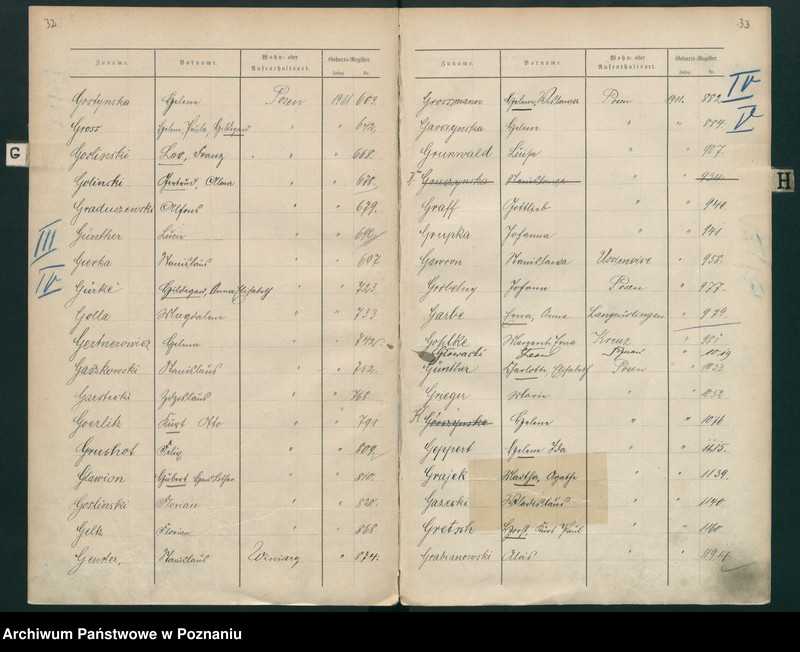 32
Zuname. Vorname. Wohn- oder Aufenthaltsort. Geburts-Register
Jahrg. Nr.
Gostynska Helene Posen 1911 602.
Gross Helene, Paula, Hildegard " " 642.
Goslinski Leo, Franz " " 668.
Golinski Gertrud, Alma " " 678.
Graduszewski Alfons " " 679.
III
Günther Lucie " " 690
Gierka Stanislaus " " 697
IV
Gürke Hildegard, Anna Elisabeth " " 723.
Golla Magdalena " " 733
Gertnerowicz Helena " " 742.
Gaszkowski Stanislaus " " 752.
Garstecki " " 768.
Goerlitz Kurt Otto " " 791
Felix " " 809.
Glawion Hubert " " 810.
Goslinski Florian " " 820.
Gelk Florian " " 868
Stanislaus Winiary " 874.
G
33
Zuname. Vorname. Wohn- oder Aufenthaltsort. Geburts-Register
Jahrg. Nr.
Grossmann Helene, Posen 1911. 882.
IV
Garszynska Helene " " 884.
V
Grunwald Luise " " 907.
Gruszynska Stanislawa " " 934.
Graff Gottlieb " " 940.
Grupka Johanna " " 941
Gawron Stanislawa " 958.
Grobelny Johann Posen " 977.
Garbe Erna, Anna Langenöslingen " 979.
Gohlke Margarete Erna Kreuz " 981.
Glowacki Poznan " 1019
Günther Charlotte, Elisabeth Posen " 1033
Grieger Marie " " 1052
Helene " " 1076
Geppert Helene Ida " " 1115.
Grajek Martha, Agathe " " 1139.
Gazecki Wladislaus " " 1140
Gretsch Horst, Kurt Paul " " 1160
Grabianowski Alois " " 1194.
H
Archiwum Państwowe w Poznaniu